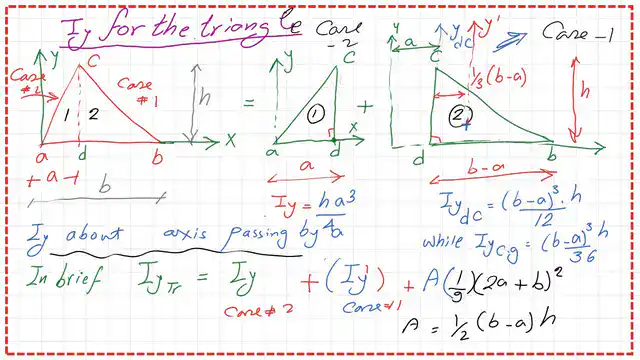 Iy for the triangle
Case -2
Case -1
y
C
Case #2
Case #1
1 2
h
x
a d b
+ a +
b
=
y
C
1
x
a d
a
Iy = ha³/4
+
y
a
y dc
y'
C
1/3 (b-a)
2
h
d b
b-a
Iy dc = (b-a)³·h/12
while Iy C.g = (b-a)³h/36
Iy about axis passing by a
In brief Iy Tr = Iy + (Iy') + A(1/9)(2a+b)²
Case #2 Case #1
A = 1/2 (b-a) h